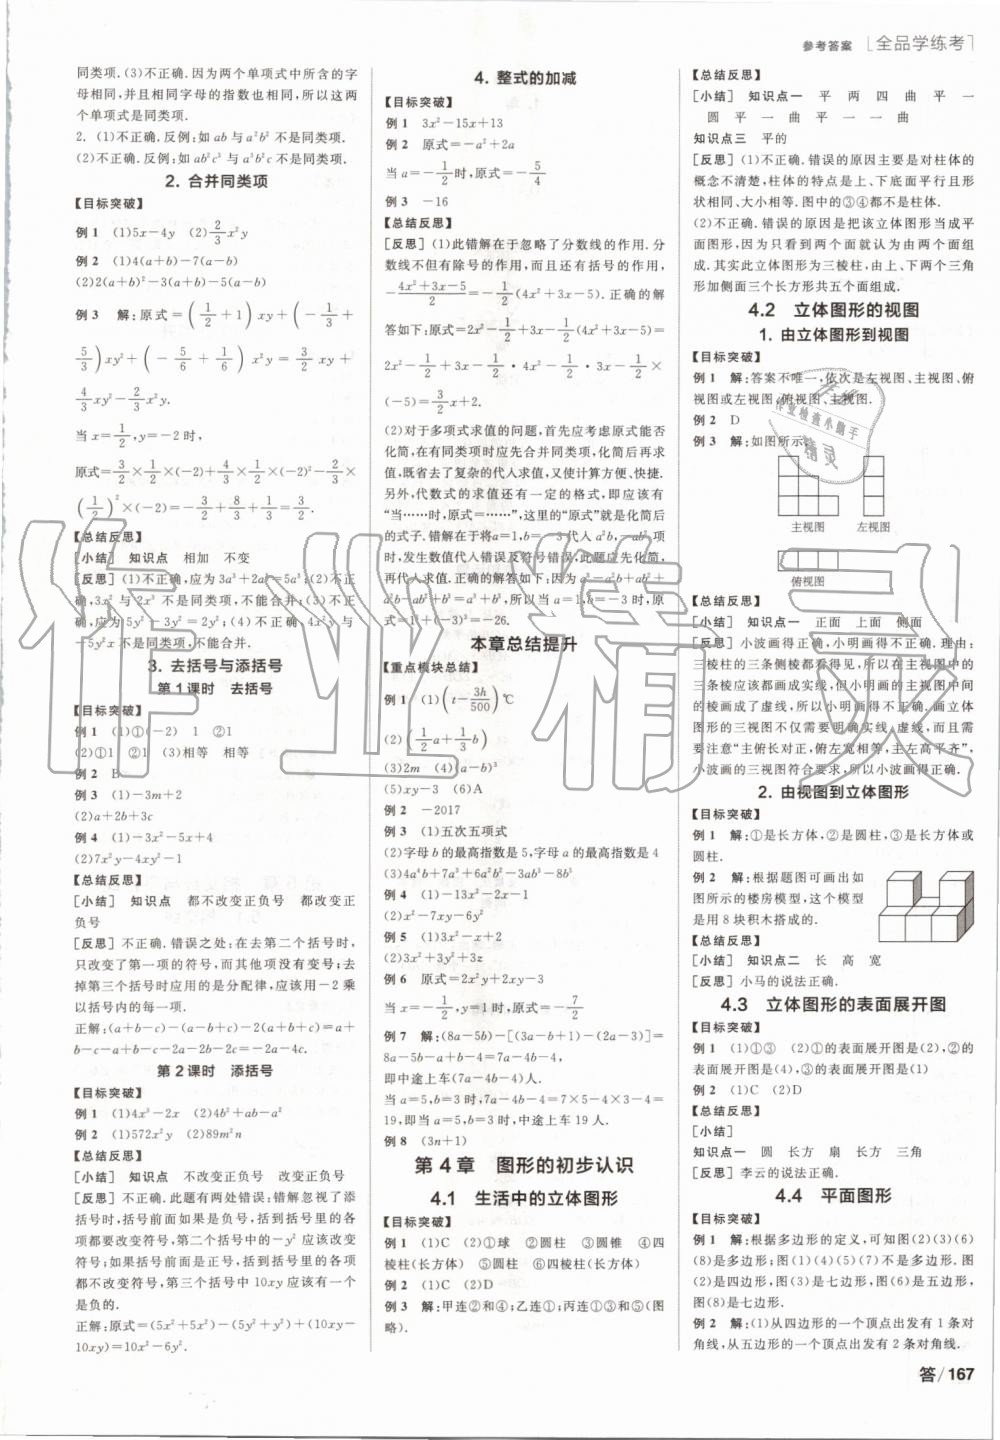 参考答案 [全品学练考]
同类项.(3)不正确.因为两个单项式中所含的字
母相同,并且相同字母的指数也相同,所以这两
个单项式是同类项.
2. (1)不正确.反例:如 ab 与 a²b² 不是同类项.
(2)不正确.反例:如 ab²c³ 与 a³b²c 不是同类项.
2. 合并同类项
【目标突破】
例 1 (1)5x-4y (2)2/3x²y
例 2 (1)4(a+b)-7(a-b)
(2)2(a+b)²-3(a+b)-5(a-b)
例 3 解:原式=(1/2+1)xy+(-1/3+
5/3)xy²+(-5/6+1/6)x²y=3/2xy+
4/3xy²-2/3x²y.
当 x=1/2,y=-2 时,
原式=3/2×1/2×(-2)+4/3×1/2×(-2)²-2/3×
(1/2)²×(-2)=-3/2+8/3+1/3=3/2.
【总结反思】
[小结] 知识点 相加 不变
[反思] (1)不正确,应为 3a³+2a³=5a³;(2)不正
确,3x² 与 2x³ 不是同类项,不能合并;(3)不正
确,应为 5y²-3y²=2y²;(4)不正确,4x²y 与
-5y²x 不是同类项,不能合并.
3. 去括号与添括号
第 1 课时 去括号
【目标突破】
例 1 (1)①(-2) 1 ②1
(2)①1 ②1 (3)相等 相等
例 2 B
例 3 (1)-3m+2
(2)a+2b+3c
例 4 (1)-3x²-5x+4
(2)7x²y-4xy²-1
【总结反思】
[小结] 知识点 都不改变正负号 都改变正
负号
[反思] 不正确.错误之处:在去第二个括号时,
只改变了第一项的符号,而其他项没有变号;去
掉第三个括号时应用的是分配律,应该用-2乘
以括号内的每一项.
正解:(a+b-c)-(-a-b+c)-2(a+b+c)=a+
b-c-a+b-c-2a-2b-2c=-2a-4c.
第 2 课时 添括号
【目标突破】
例 1 (1)4x³-2x (2)4b²+ab-a²
例 2 (1)572x²y (2)89m²n
【总结反思】
[小结] 知识点 不改变正负号 改变正负号
[反思] 不正确.此题有两处错误:错解忽视了添
括号时,括号前面如果是负号,括到括号里的各
项都要改变符号,第二个括号中的-y² 应该改变
符号;括号前面如果是正号,括到括号里的各项
都不改变符号,第三个括号中 10xy 应该有一个
是负的.
正解:原式=(5x²+5x²)-(5y²+y²)+(10xy-
10xy)=10x²-6y².
4. 整式的加减
【目标突破】
例 1 3x²-15x+13
例 2 原式=-a²+2a
当 a=-1/2时,原式=-5/4
例 3 -16
【总结反思】
[反思] (1)此错解在于忽略了分数线的作用.分
数线不但有除号的作用,而且还有括号的作用,
-(4x²+3x-5)/2=-1/2(4x²+3x-5).正确的解
答如下:原式=2x²-1/2+3x-1/2(4x²+3x-5)=
2x²-1/2+3x-1/2·4x²-1/2·3x-1/2×
(-5)=3/2x+2.
(2)对于多项式求值的问题,首先应考虑原式能否
化简,在有同类项时应先合并同类项,化简后再求值,
既省去了复杂的代入求值,又使计算方便、快捷.
另外,代数式的求值还有一定的格式,即应该有
“当……时,原式=……”,这里的“原式”就是化简后
的式子.错解在于将a=1,b=-3代入 a³b, -ab,
时,发生数值代入错误及符号错误,此题应先化简,
再代入求值.正确的解答如下:因为a³=a²b+ab²+
a²b-ab²+b³=a³+b³,所以当 a=1,b=-3 时,原
式=1³+(-3)³=-26.
本章总结提升
【重点模块总结】
例 1 (1)(t-3h/500)℃
(2)(1/2a+1/3b)
(3)2m (4)(a-b)³
(5)xy-3 (6)A
例 2 -2017
例 3 (1)五次五项式
(2)字母 b 的最高指数是 5,字母 a 的最高指数是 4
(3)4a⁴b+7a³+6a²b²-3ab³-8b⁵
例 4 (1)-13x²-2x-1
(2)x²-7xy-6y²
例 5 (1)3x²-x
(2)3x²+3y²+3z²
例 6 原式=2x²y+2xy-3
当 x=-1/2,y=1 时,原式=-7/2
例 7 解:(8a-5b)-[(3a-b+1)-(2a-3)]=
8a-5b-a+b-4=7a-4b-4,
即中途上车(7a-4b-4)人.
当 a=5,b=3 时,7a-4b-4=7×5-4×3-4=
19,即当 a=5,b=3 时,中途上车 19 人.
例 8 (3n+1)
第 4 章 图形的初步认识
4.1 生活中的立体图形
【目标突破】
例 1 (1)C (2)①球 ②圆柱 ③圆锥 ④四
棱柱(长方体) ⑤圆柱 ⑥四棱柱(长方体)
例 2 (1)C (2)D
例 3 解:甲连②和④;乙连①;丙连①③⑤(图
略).
【总结反思】
[小结] 知识点一 平 两 四 曲 平 一
圆 平 一 曲 平 一 一 曲
知识点三 平的
[反思] (1)不正确.错误的原因主要是对柱体的
概念不清楚,柱体的特点是上、下两个底面的形
状相同、大小相等.图中的③④都不是柱体.
(2)不正确.错误的原因是把该立体图形当成平
面图形,因为只看到两个面就认为由两个面组
成.其实此立体图形为三棱柱,由上、下两个三角
形加侧面三个长方形共五个面组成.
4.2 立体图形的视图
1. 由立体图形到视图
【目标突破】
例 1 解:答案不唯一,依次是左视图、主视图、俯
视图或左视图、俯视图、主视图.
例 2 D
例 3 解:如图所示.
主视图 左视图
俯视图
【总结反思】
[小结] 知识点一 正面 上面 侧面
[反思] 小波画得正确,小明画得不正确.理由:
三棱柱的三条侧棱都看得见,所以在主视图中的
三条棱应该都画成实线,但小明画的主视图中间
的棱画成了虚线,所以小明画得不正确.画立体
图形的三视图不仅需要明确实线、虚线,而且需
要注意“主俯长对正,俯左宽相等,主左高平齐”.
小波画的三视图符合要求,所以小波画得正确.
2. 由视图到立体图形
【目标突破】
例 1 解:①是长方体,②是圆柱,③是长方体或
圆柱.
例 2 解:根据题图可画出如
图所示的楼房模型,这个模型
是用 8 块积木搭成的.
【总结反思】
[小结] 知识点二 长 高 宽
[反思] 小马的说法正确.
4.3 立体图形的表面展开图
例 1 (1)①③ (2)①的表面展开图是(2),②的
表面展开图是(4),③的表面展开图是(1)
例 2 (1)C (2)D
【总结反思】
[小结]
知识点一 圆 长方 扇 长方 三角
[反思] 李云的说法正确.
4.4 平面图形
【目标突破】
例 1 解:根据多边形的定义,可知图(2)(3)(6)
(8)是多边形;图(1)(4)(5)(7)不是多边形.图
(2)是四边形,图(3)是七边形,图(6)是五边形,
图(8)是七边形.
例 2 解:(1)从四边形的一个顶点出发有 1 条对
角线,从五边形的一个顶点出发有 2 条对角线.
答/167
作业精灵
作业检查小助手
精灵